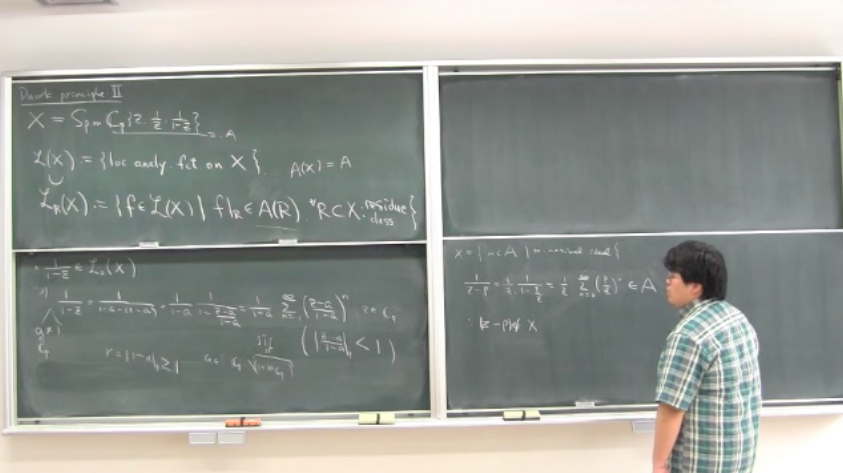 Dwork principle II
X = Spm ℂp{z, 1/z, 1/(1-z)} =: A
ℒ(X) := {loc analy. fct on X}. A(X) = A
∪
ℒR(X) := {f ∈ ℒ(X) | f|R ∈ A(R) ∀R ⊂ X : residue class}
1/(1-z) ∈ ℒR(X)
1/(1-z) = 1/(1-a-(z-a)) = 1/(1-a) · 1/(1-(z-a)/(1-a)) = 1/(1-a) Σ ((z-a)/(1-a))^n
(|(z-a)/(1-a)| < 1)
r = |1-a| ≥ 1
X = {m ⊂ A | maximal ideal}
1/(z-p) = 1/z · 1/(1-p/z) = 1/z Σ (p/z)^n ∈ A